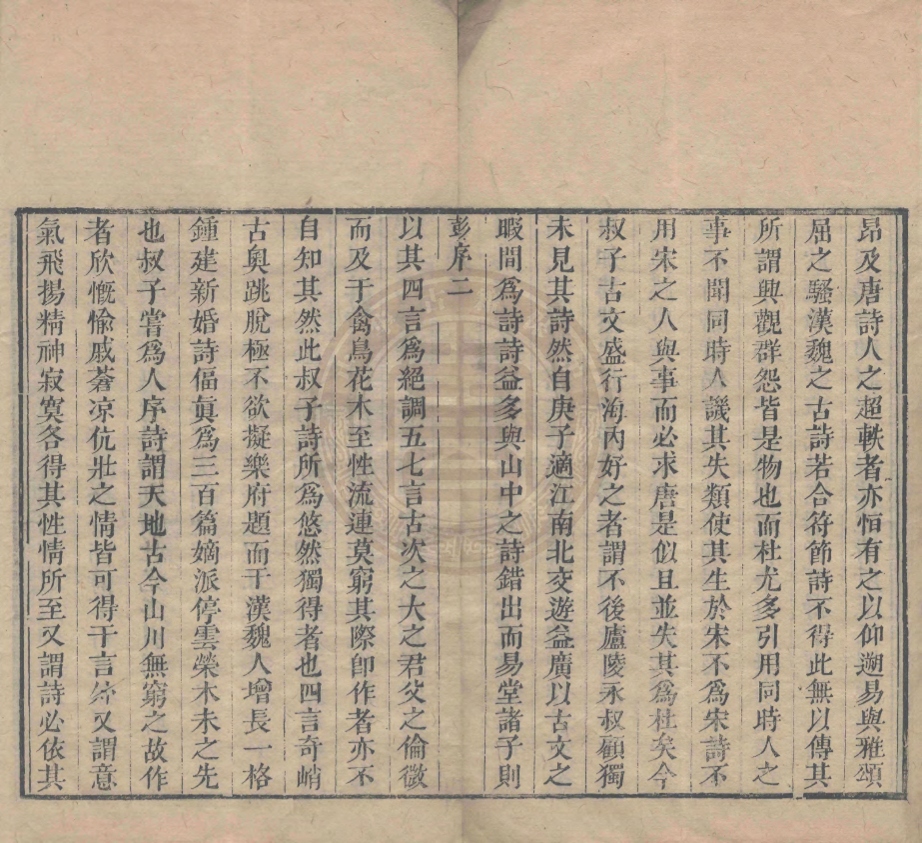 昂及唐詩人之超軼者亦恒有之以仰遡易與雅頌
屈之騷漢魏之古詩若合符節詩不得此無以傳其
所謂興觀群怨皆是物也而杜尤多引用同時人之
事不聞同時人譏其失類使其生於宋不為宋詩不
用宋之人與事而必求唐是似且並失其為杜矣今
叔子古文盛行海內好之者謂不後廬陵永叔顧獨
未見其詩然自庚子適江南北交遊益廣以古文之
暇間為詩詩益多與山中之詩錯出而易堂諸子則
彭序二
以其四言為絕調五七言古次之大之君父之倫微
而及于禽鳥花木至性流連莫窮其際即作者亦不
自知其然此叔子詩所為悠然獨得者也四言奇峭
古奥跳脫極不欲擬樂府題而于漢魏人增長一格
鍾建新婚詩偪真為三百篇嫡派停雲榮木未之先
也叔子嘗為人序詩謂天地古今山川無窮之故作
者欣慨愉戚蒼凉伉壯之情皆可得于言外又謂意
氣飛揚精神寂寞各得其性情所至又謂詩必依其